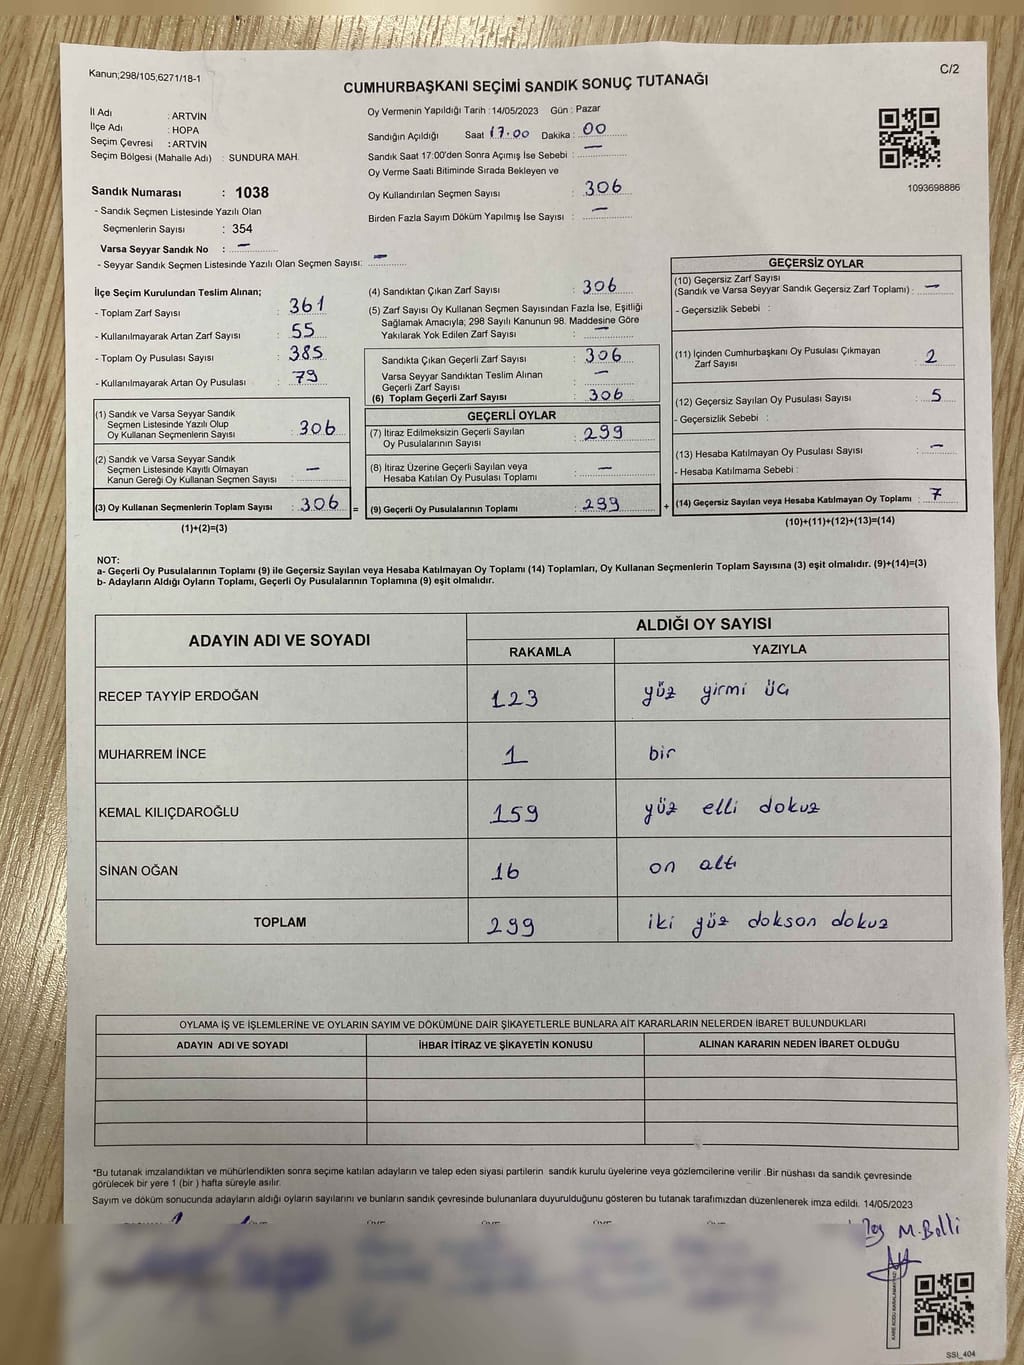 Kanun;298/105,6271/18-1
C/2
CUMHURBAŞKANI SEÇİMİ SANDIK SONUÇ TUTANAĞI
İl Adı : ARTVİN
İlçe Adı : HOPA
Seçim Çevresi : ARTVİN
Seçim Bölgesi (Mahalle Adı) : SUNDURA MAH.
Sandık Numarası : 1038
- Sandık Seçmen Listesinde Yazılı Olan
Seçmenlerin Sayısı : 354
Varsa Seyyar Sandık No : —
- Seyyar Sandık Seçmen Listesinde Yazılı Olan Seçmen Sayısı: —
Oy Vermenin Yapıldığı Tarih : 14/05/2023 Gün : Pazar
Sandığın Açıldığı Saat 17:00 Dakika : 00
Sandık Saat 17:00'den Sonra Açımış İse Sebebi : —
Oy Verme Saati Bitiminde Sırada Bekleyen ve
Oy Kullandırılan Seçmen Sayısı : 306
Birden Fazla Sayım Döküm Yapılmış İse Sayısı : —
1093698886
İlçe Seçim Kurulundan Teslim Alınan;
- Toplam Zarf Sayısı : 361
- Kullanılmayarak Artan Zarf Sayısı : 55
- Toplam Oy Pusulası Sayısı : 385
- Kullanılmayarak Artan Oy Pusulası : 79
(1) Sandık ve Varsa Seyyar Sandık
Seçmen Listesinde Yazılı Olup
Oy Kullanan Seçmenlerin Sayısı : 306
(2) Sandık ve Varsa Seyyar Sandık
Seçmen Listesinde Kayıtlı Olmayan
Kanun Gereği Oy Kullanan Seçmen Sayısı : —
(3) Oy Kullanan Seçmenlerin Toplam Sayısı : 306 =
(1)+(2)=(3)
(4) Sandıktan Çıkan Zarf Sayısı : 306
(5) Zarf Sayısı Oy Kullanan Seçmen Sayısından Fazla İse, Eşitliği
Sağlamak Amacıyla; 298 Sayılı Kanunun 98. Maddesine Göre
Yakılarak Yok Edilen Zarf Sayısı : —
Sandıkta Çıkan Geçerli Zarf Sayısı : 306
Varsa Seyyar Sandıktan Teslim Alınan
Geçerli Zarf Sayısı : —
(6) Toplam Geçerli Zarf Sayısı : 306
GEÇERLİ OYLAR
(7) İtiraz Edilmeksizin Geçerli Sayılan
Oy Pusulalarının Sayısı : 299
(8) İtiraz Üzerine Geçerli Sayılan veya
Hesaba Katılan Oy Pusulası Toplamı : —
(9) Geçerli Oy Pusulalarının Toplamı : 299 +
GEÇERSİZ OYLAR
(10) Geçersiz Zarf Sayısı
(Sandık ve Varsa Seyyar Sandık Geçersiz Zarf Toplamı) : —
- Geçersizlik Sebebi :
(11) İçinden Cumhurbaşkanı Oy Pusulası Çıkmayan
Zarf Sayısı : 2
(12) Geçersiz Sayılan Oy Pusulası Sayısı : 5
- Geçersizlik Sebebi :
(13) Hesaba Katılmayan Oy Pusulası Sayısı : —
- Hesaba Katılmama Sebebi :
(14) Geçersiz Sayılan veya Hesaba Katılmayan Oy Toplamı : 7
(10)+(11)+(12)+(13)=(14)
NOT:
a- Geçerli Oy Pusulalarının Toplamı (9) ile Geçersiz Sayılan veya Hesaba Katılmayan Oy Toplamı (14) Toplamları, Oy Kullanan Seçmenlerin Toplam Sayısına (3) eşit olmalıdır. (9)+(14)=(3)
b- Adayların Aldığı Oyların Toplamı, Geçerli Oy Pusulalarının Toplamına (9) eşit olmalıdır.
ADAYIN ADI VE SOYADI
ALDIĞI OY SAYISI
RAKAMLA YAZIYLA
RECEP TAYYİP ERDOĞAN 123 yüz yirmi üç
MUHARREM İNCE 1 bir
KEMAL KILIÇDAROĞLU 159 yüz elli dokuz
SİNAN OĞAN 16 on altı
TOPLAM 299 iki yüz dokson dokuz
OYLAMA İŞ VE İŞLEMLERİNE VE OYLARIN SAYIM VE DÖKÜMÜNE DAİR ŞİKAYETLERLE BUNLARA AİT KARARLARIN NELERDEN İBARET BULUNDUKLARI
ADAYIN ADI VE SOYADI İHBAR İTİRAZ VE ŞİKAYETİN KONUSU ALINAN KARARIN NEDEN İBARET OLDUĞU
*Bu tutanak imzalandıktan ve mühürlendikten sonra seçime katılan adayların ve talep eden siyasi partilerin sandık kurulu üyelerine veya gözlemcilerine verilir .Bir nüshası da sandık çevresinde
görülecek bir yere 1 (bir ) hafta süreyle asılır.
Sayım ve döküm sonucunda adayların aldığı oyların sayılarını ve bunların sandık çevresinde bulunanlara duyurulduğunu gösteren bu tutanak tarafımızdan düzenlenerek imza edildi. 14/05/2023
M. Balli
SSI_404